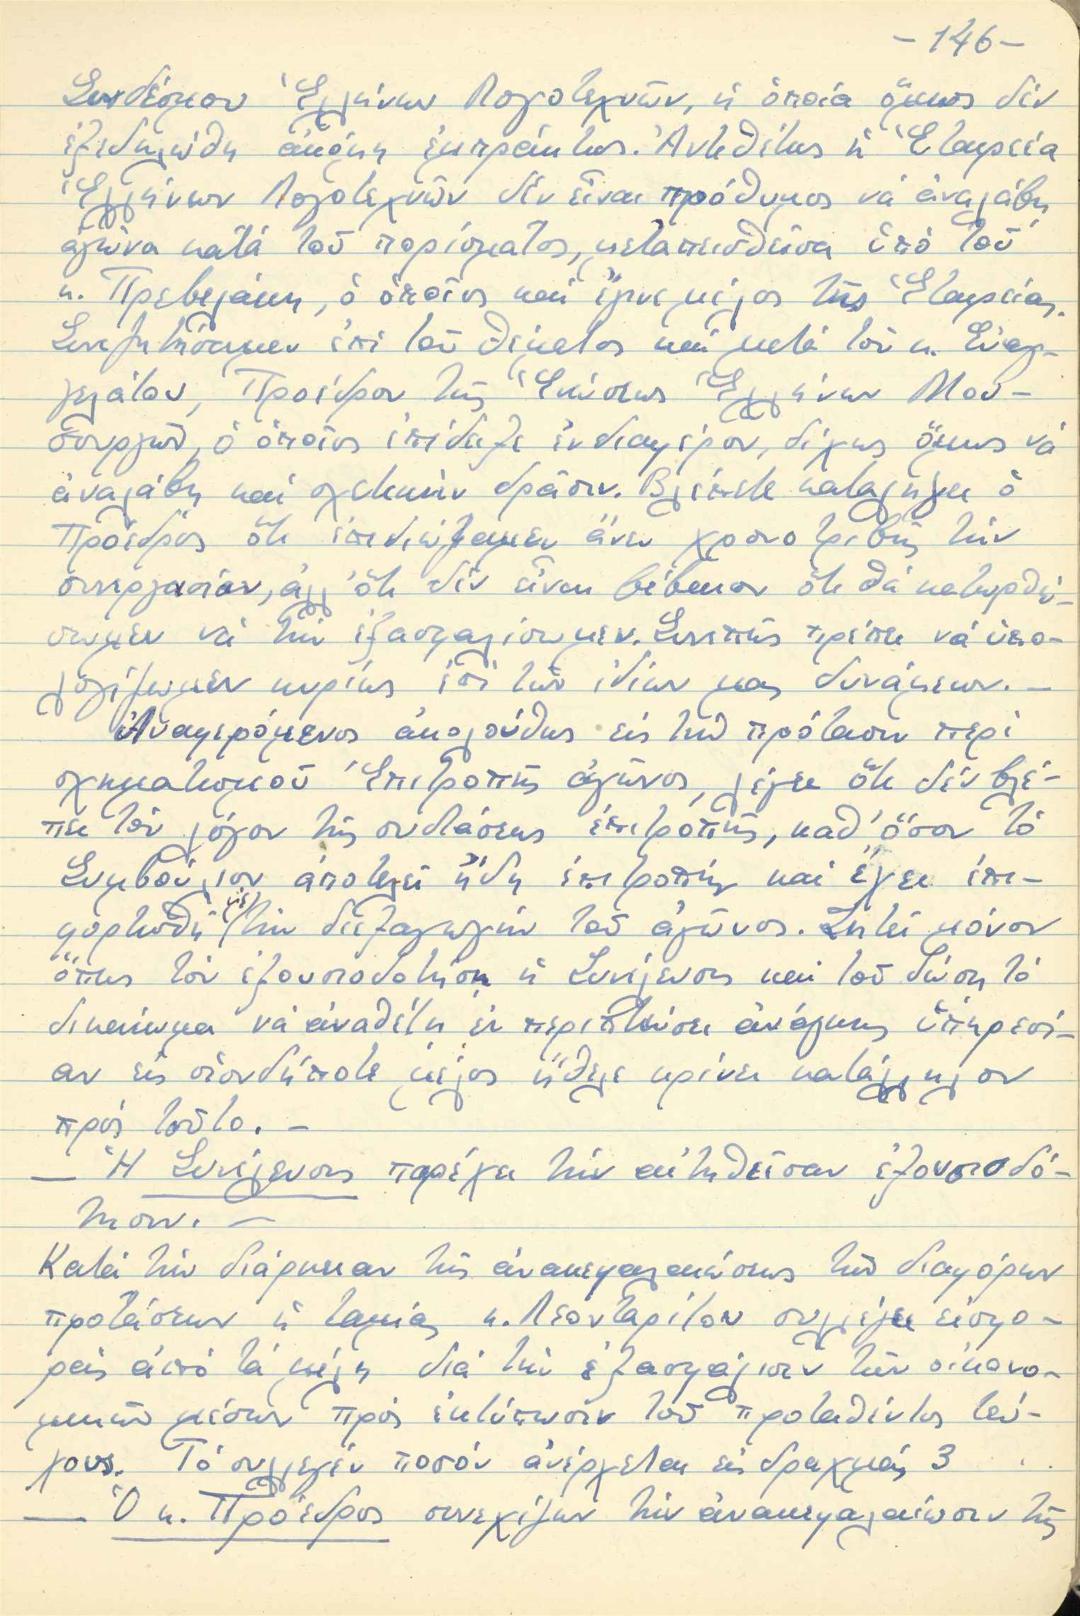 - 146 -
Συνδέσμου Ἑλλήνων Λογοτεχνῶν, ἡ ὁποία ὅμως δέν
ἐξεδηλώθη ἀκόμη ἐμπράκτως. Ἀντιθέτως ἡ Ἑταιρεία
Ἑλλήνων Λογοτεχνῶν δέν εἶναι πρόθυμος νά ἀναλάβη
ἀγῶνα κατά τοῦ πορίσματος, μεταπεισθεῖσα ὑπό τοῦ
κ. Πρεβελάκη, ὁ ὁποῖος καί ἔγινε μέλος τῆς Ἑταιρείας.
Συνεζητήσαμεν ἐπί τοῦ θέματος καί μετά τοῦ κ. Εὐαγ-
γελάτου, Προέδρου τῆς Ἑνώσεως Ἑλλήνων Μου-
σουργῶν, ὁ ὁποῖος ἐπέδειξε ἐνδιαφέρον, δίχως ὅμως νά
ἀναλάβη καί σχετικήν δρᾶσιν. Βλέπετε καταλήγει ὁ
Πρόεδρος ὅτι ἐπεδιώξαμεν ἄνευ χρονοτριβῆς τήν
συνεργασίαν, ἀλλ' ὅτι δέν εἶναι βέβαιον ὅτι θά κατορθώ-
σωμεν νά τήν ἐξασφαλίσωμεν. Συνεπῶς πρέπει νά ὑπο-
λογίζωμεν κυρίως ἐπί τῶν ἰδίων μας δυνάμεων. -
Ἀναφερόμενος ἀκολούθως εἰς τήν πρότασιν περί
σχηματισμοῦ Ἐπιτροπῆς ἀγῶνος, λέγει ὅτι δέν βλέ-
πει τόν λόγον τῆς συστάσεως ἐπιτροπῆς, καθ' ὅσον τό
Συμβούλιον ἀποτελεῖ ἤδη ἐπιτροπήν καί ἔχει ἐπι-
φορτισθῆ μέ τήν διεξαγωγήν τοῦ ἀγῶνος. Ζητεῖ μόνον
ὅπως τόν ἐξουσιοδοτήση ἡ Συνέλευσις καί τοῦ δώση τό
δικαίωμα νά ἀναθέτη ἐν περιπτώσει ἀνάγκης ὑπηρεσί-
αν εἰς οἱονδήποτε μέλος ἤθελε κρίνει κατάλληλον
πρός τοῦτο. -
— Ἡ Συνέλευσις παρέχει τήν αἰτηθεῖσαν ἐξουσιοδό-
τησιν. -
Κατά τήν διάρκειαν τῆς ἀνακεφαλαιώσεως τῶν διαφόρων
προτάσεων ἡ ταμίας κ. Λεονταρίτου συλλέγει εἰσφο-
ράς ἀπό τά μέλη διά τήν ἐξασφάλισιν τῶν οἰκονο-
μικῶν μέσων πρός ἐκτύπωσιν τοῦ προταθέντος τεύ-
χους. Τό συλλεγέν ποσόν ἀνέρχεται εἰς δραχμάς 3 . .
— Ὁ κ. Πρόεδρος συνεχίζων τήν ἀνακεφαλαίωσιν τῆς